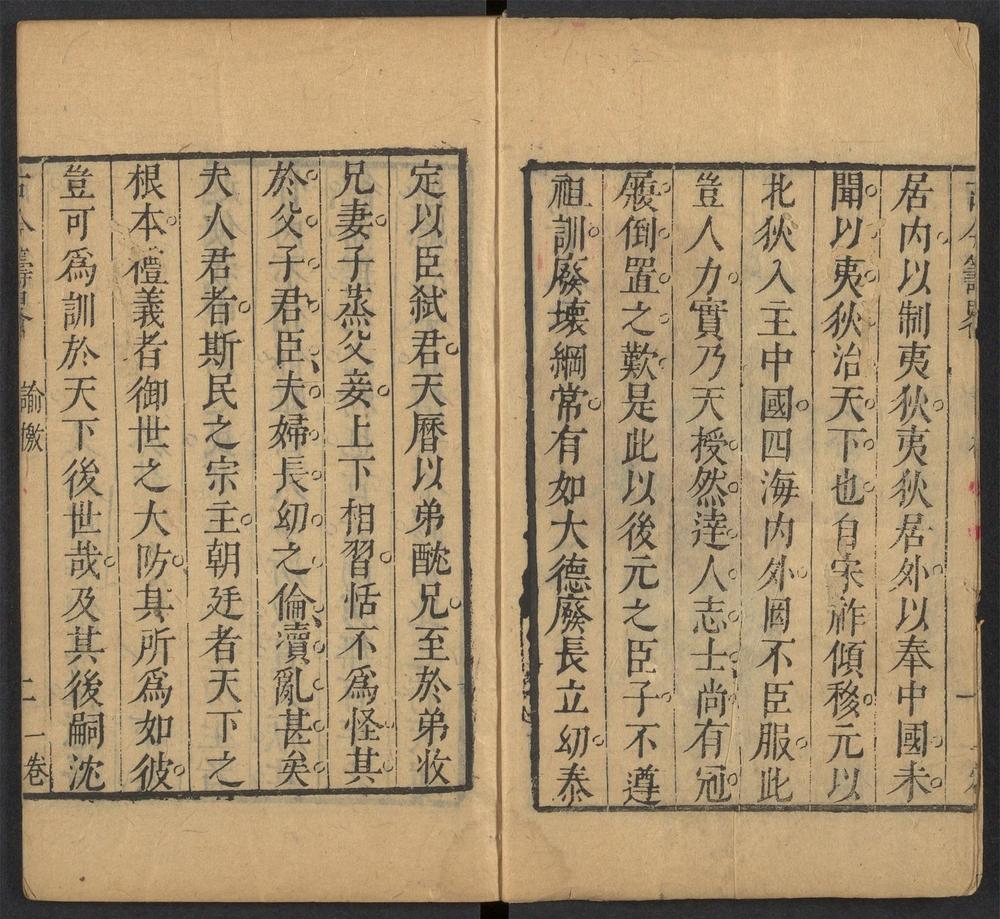 居内以制夷狄夷狄居外以奉中國未
聞以夷狄治天下也自宋祚傾移元以
北狄入主中國四海内外罔不臣服此
豈人力實乃天授然達人志士尚有冠
履倒置之歎是此以後元之臣子不遵
祖訓廢壞綱常有如大德廢長立幼泰
定以臣弑君天曆以弟酖兄至於弟收
兄妻子蒸父妾上下相習恬不爲怪其
於父子君臣夫婦長幼之倫瀆亂甚矣
夫人君者斯民之宗主朝廷者天下之
根本禮義者御世之大防其所爲如彼
豈可爲訓於天下後世哉及其後嗣沈
諭檄 二 一卷